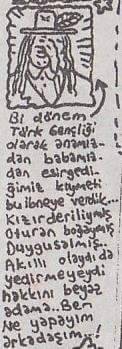 Bi dönem
Türk Gençliği
olarak anamız-
dan babamız-
dan esirgedi-
ğimiz kıymeti
bu ibneye verdik...
Kızırderiliymiş
Oturan boğaymış
Duygusalmış..
Akıllı olaydı da
yedirmeyeydi
hakkını beyaz
adama.. Ben
Ne yapayım
arkadaşım...!